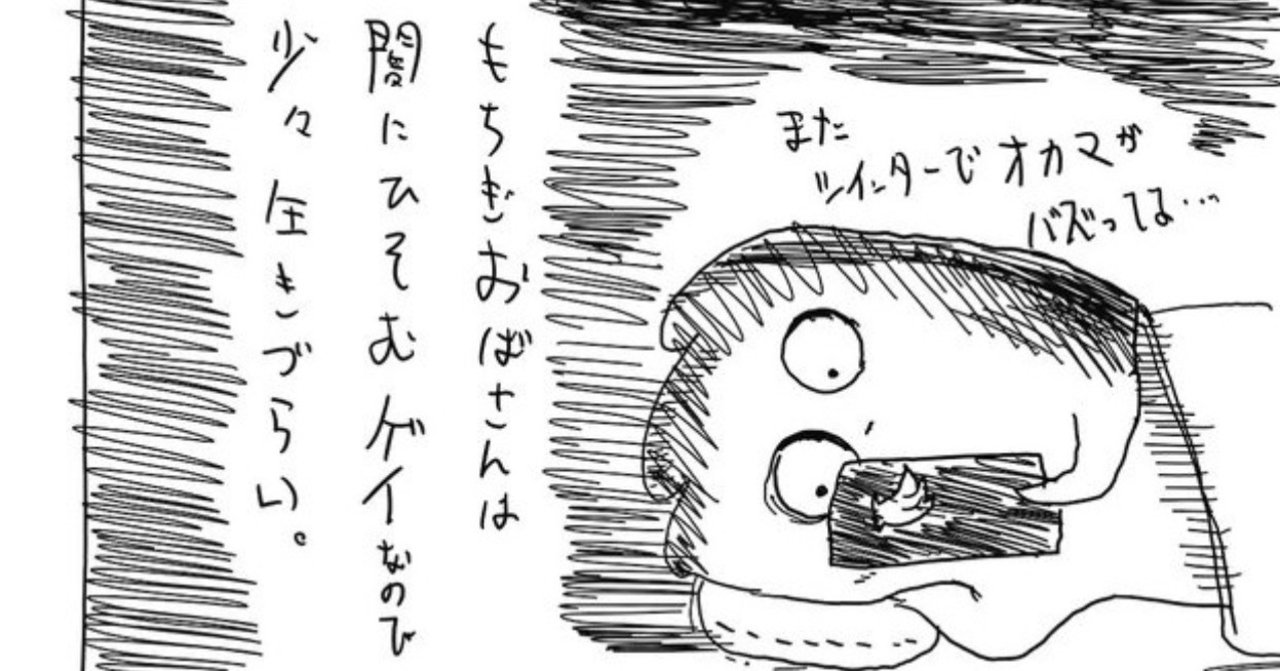 またツイッターでオカマが
バズってる…
もちぎおばさんは
闇にひそむゲイなので
少々生きづらい。